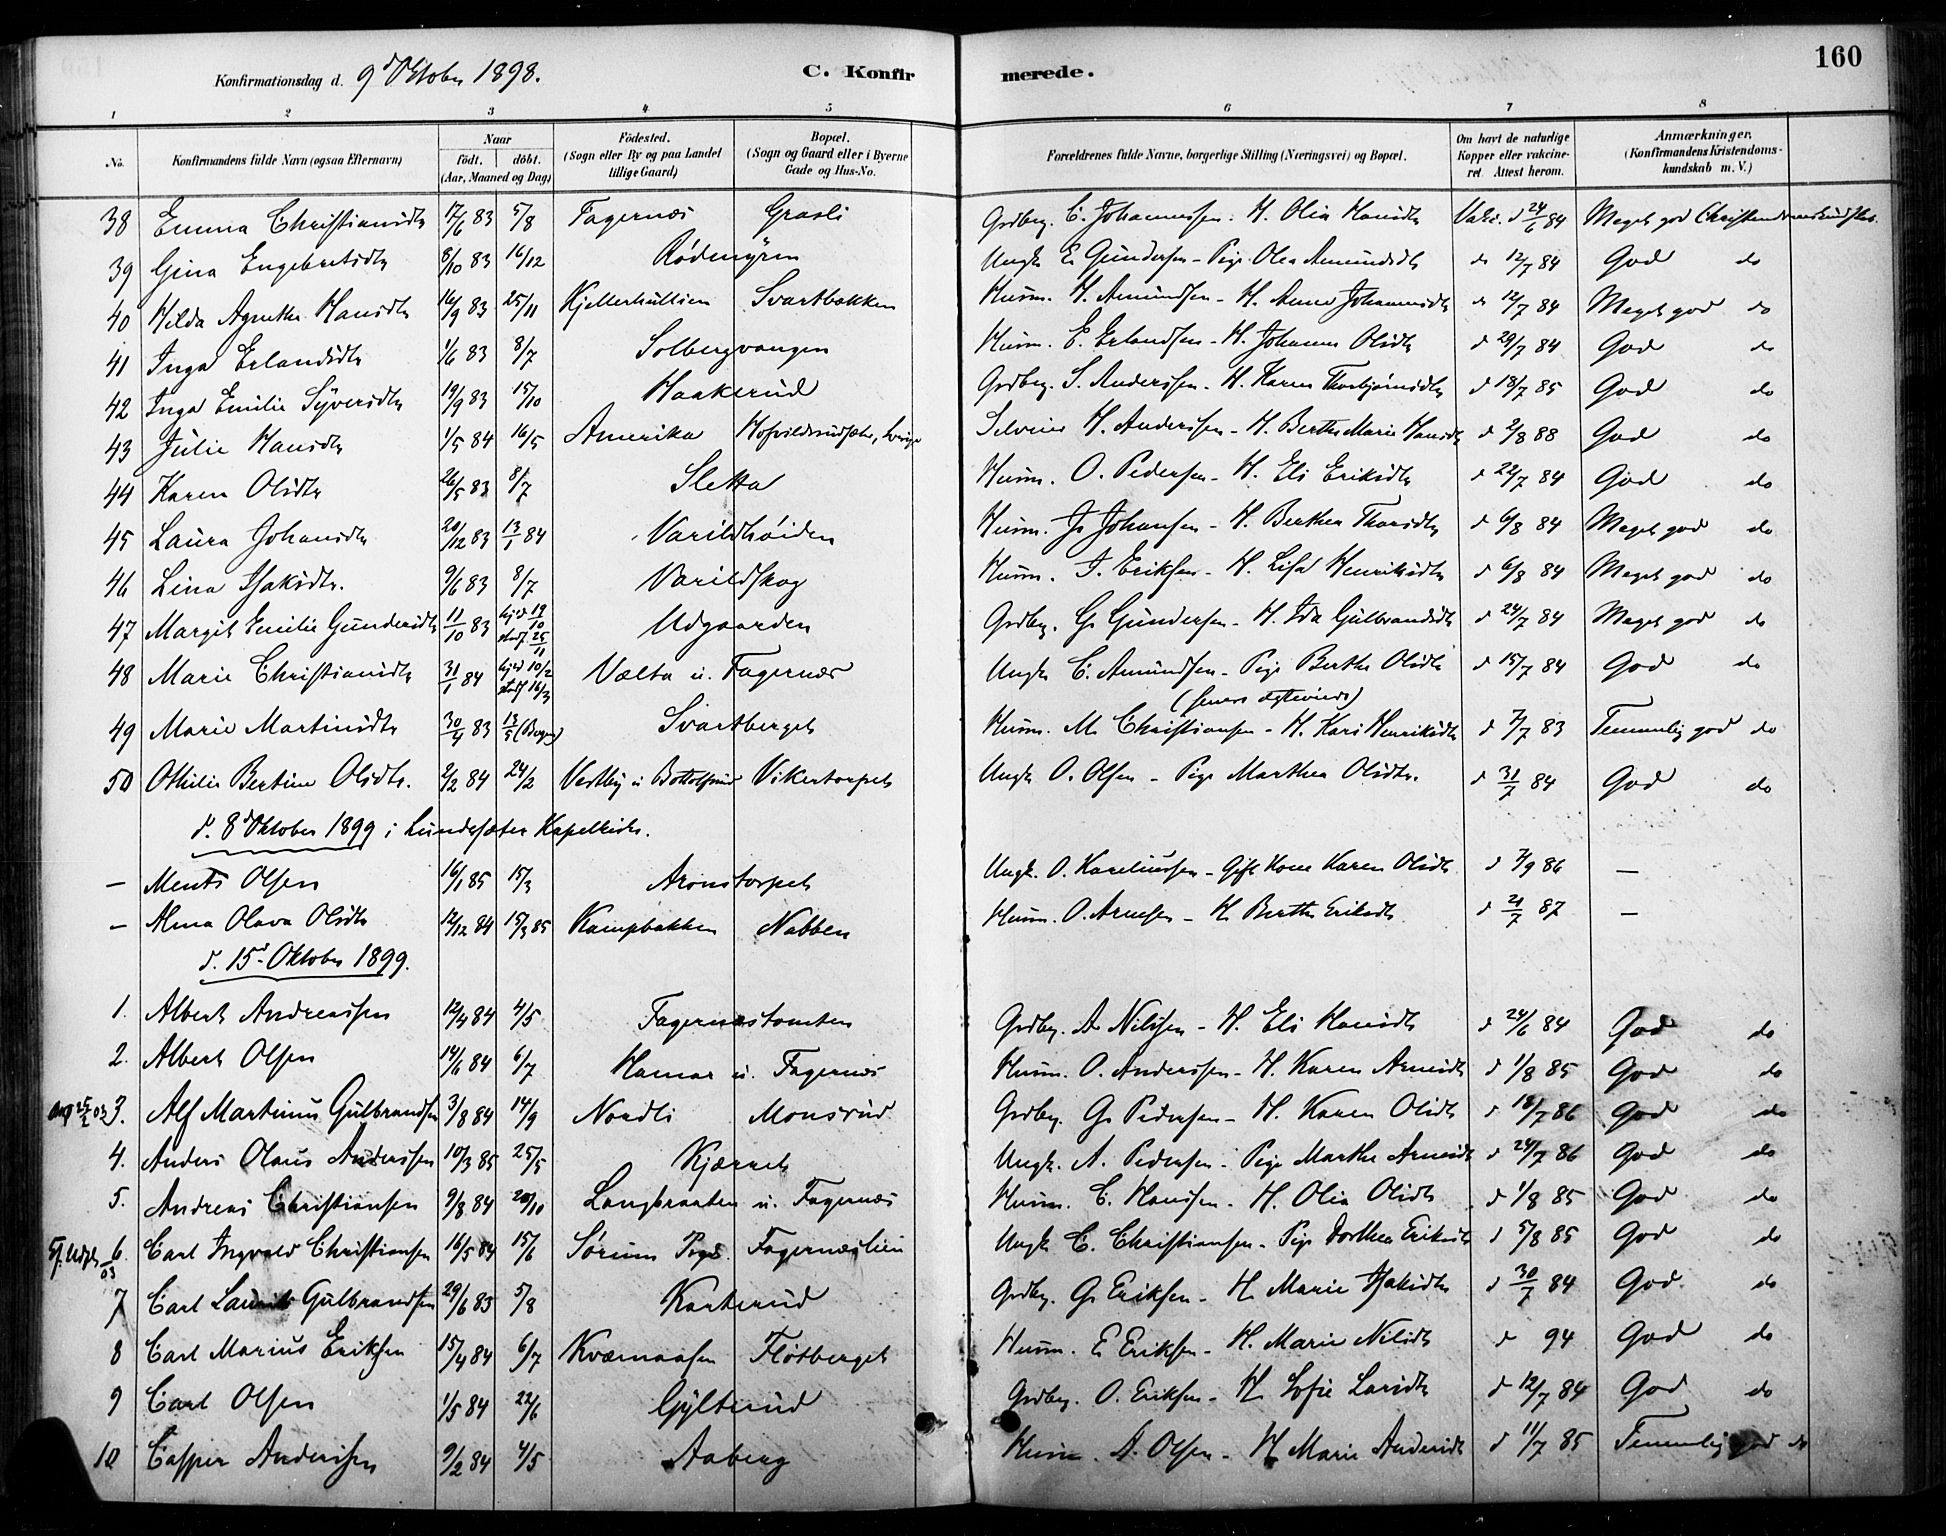 160
Konfirmationsdag d. 9d Oktober 1898. C. Konfirmerede.
1 2 3 4 5 6 7 8
No. Konfirmandens fulde Navn (ogsaa Efternavn) Naar födt. döbt. (Aar, Maaned og Dag) Födested. (Sogn eller By og paa Landet tillige Gaard) Bopæl. (Sogn og Gaard eller i Byerne Gade og Hus-No. Forældrenes fulde Navne, borgerlige Stilling (Næringsvei) og Bopæl. Om havt de naturlige Kopper eller vakcineret. Attest herom. Anmærkninger. (Konfirmandens Kristendomskundskab m. V.)
38 Emma Christiansdtr 17/6 83 5/8 Fagernæs Grasli Grdbrg. C. Johannessen - H. Olia Hansdtr Vakc. d 24/6 84 Meget god Christendomskundskab.
39 Gina Engebretsdtr 8/10 83 16/12 Rødmyren Ungk. E. Gundersen - Pige Olea Amundsdtr d 12/7 84 God do
40 Hilda Agnethe Hansdtr 16/9 83 25/11 Kjellerhullien Svartbakken Husm. H. Amundsen - H. Anne Johannesdtr d 12/7 84 Meget god do
41 Inga Erlandsdtr 1/6 83 8/7 Solbergvangen Husm. E. Erlandsen - H. Johanne Olsdtr d 29/7 84 God do
42 Inga Emilie Syversdtr 19/9 83 15/10 Haakerud Grdbrg. S. Anderssen - H. Karen Thorbjørnsdtr d 18/7 85 God do
43 Julie Hansdtr 1/5 84 16/5 Amerika Selveier H. Anderssen - H. Berthe Marie Hansdtr d 2/8 88 God do
44 Karen Olsdtr 26/5 83 8/7 Sletta Husm. O. Pedersen - H. Eli Eriksdtr d 22/7 84 God do
45 Laura Johansdtr 20/12 83 13/1 84 Varildhøiden Husm. J. Johansen - H. Berthea Thorsdtr d 6/8 84 Meget god do
46 Lina Isaksdtr. 9/6 83 8/7 Varildskog Husm. I. Eriksen - H. Lisa Henriksdtr d 6/8 84 Meget god do
47 Margit Emilie Gundersdtr 11/10 83 hjed 19/10 stadf 25/11 Udgaarden Grdbrg. G. Gundersen - H. Ida Gulbrandsdtr d 24/7 84 Meget god do
48 Marie Christiansdtr 31/1 84 hjed 10/2 stadf 16/3 Vælta u. Fagernæs Ungk. C. Amundsen - Pige Berthe Olsdtr d 15/7 84 God do
49 Marie Martinsdtr 30/4 83 13/5 Svartberget Husm. M. Christiansen - H. Kari Henriksdtr d 7/7 83 Temmelig god do
50 Othilie Bertine Olsdtr. 2/2 84 24/2 Vestby u Bottolfsrud Vikertorpet Ungk. O. Olsen - Pige Marthea Olsdtr. d 31/7 84 God do
d. 8d Oktober 1899 i Lundersæter Kapelkirke.
— Mentz Olsen 16/1 85 15/3 Aronstorpet Ungk. O. Kareliussen - Gift Kone Karen Olsdtr d 7/9 86 —
— Alma Olava Olsdtr 12/12 84 15/3 85 Kampbakken Nabben Husm. O. Arnesen - H. Berthe Eriksdtr d 21/7 87 —
d. 15d Oktober 1899.
1. Albert Andreassen 12/4 84 4/5 Fagernæstomten Grdbrg. A. Nilssen - H. Eli Hansdtr d 24/6 84 God do
2. Albert Olsen 14/6 84 6/7 Hamar u. Fagernæs Husm. O. Anderssen - H. Karen Arnesdtr d 1/8 85 God do
3. Alf Martinus Gulbrandsen 3/8 84 14/9 Nordli Monsrud Grdbrg. G. Pedersen - H. Karen Olsdtr d 18/7 86 God do
4. Anders Olaus Anderssen 10/3 85 25/5 Kjærret Ungk. A. Pedersen - Pige Marthe Arnesdtr d 24/7 86 God do
5. Andreas Christiansen 9/8 84 20/10 Langbraaten u. Fagernæs Husm. C. Hanssen - H. Olia Olsdtr d 1/8 85 God do
6. Carl Ingvald Christiansen 16/5 84 15/6 Sørum Pgd. Fagernæslien Ungk. C. Christiansen - Pige Dorthea Eriksdtr d 5/8 85 God do
7 Carl Laurits Gulbrandsen 29/6 83 5/8 Karterud Grdbrg. G. Eriksen - H. Marie Isaksdtr d 30/7 84 God do
8 Carl Marius Eriksen 15/4 84 6/7 Kværnaasen Fløtberget Husm. E. Eriksen - H. Marie Nilsdtr d 94 God do
9 Carl Olsen 1/5 84 22/6 Gylterud Grdbrg. O. Eriksen - H. Sofie Larsdtr d 12/7 84 God do
10 Casper Anderssen 9/2 84 4/5 Aaberg Husm. A. Olsen - H. Marie Andersdtr d 11/7 85 Temmelig god do